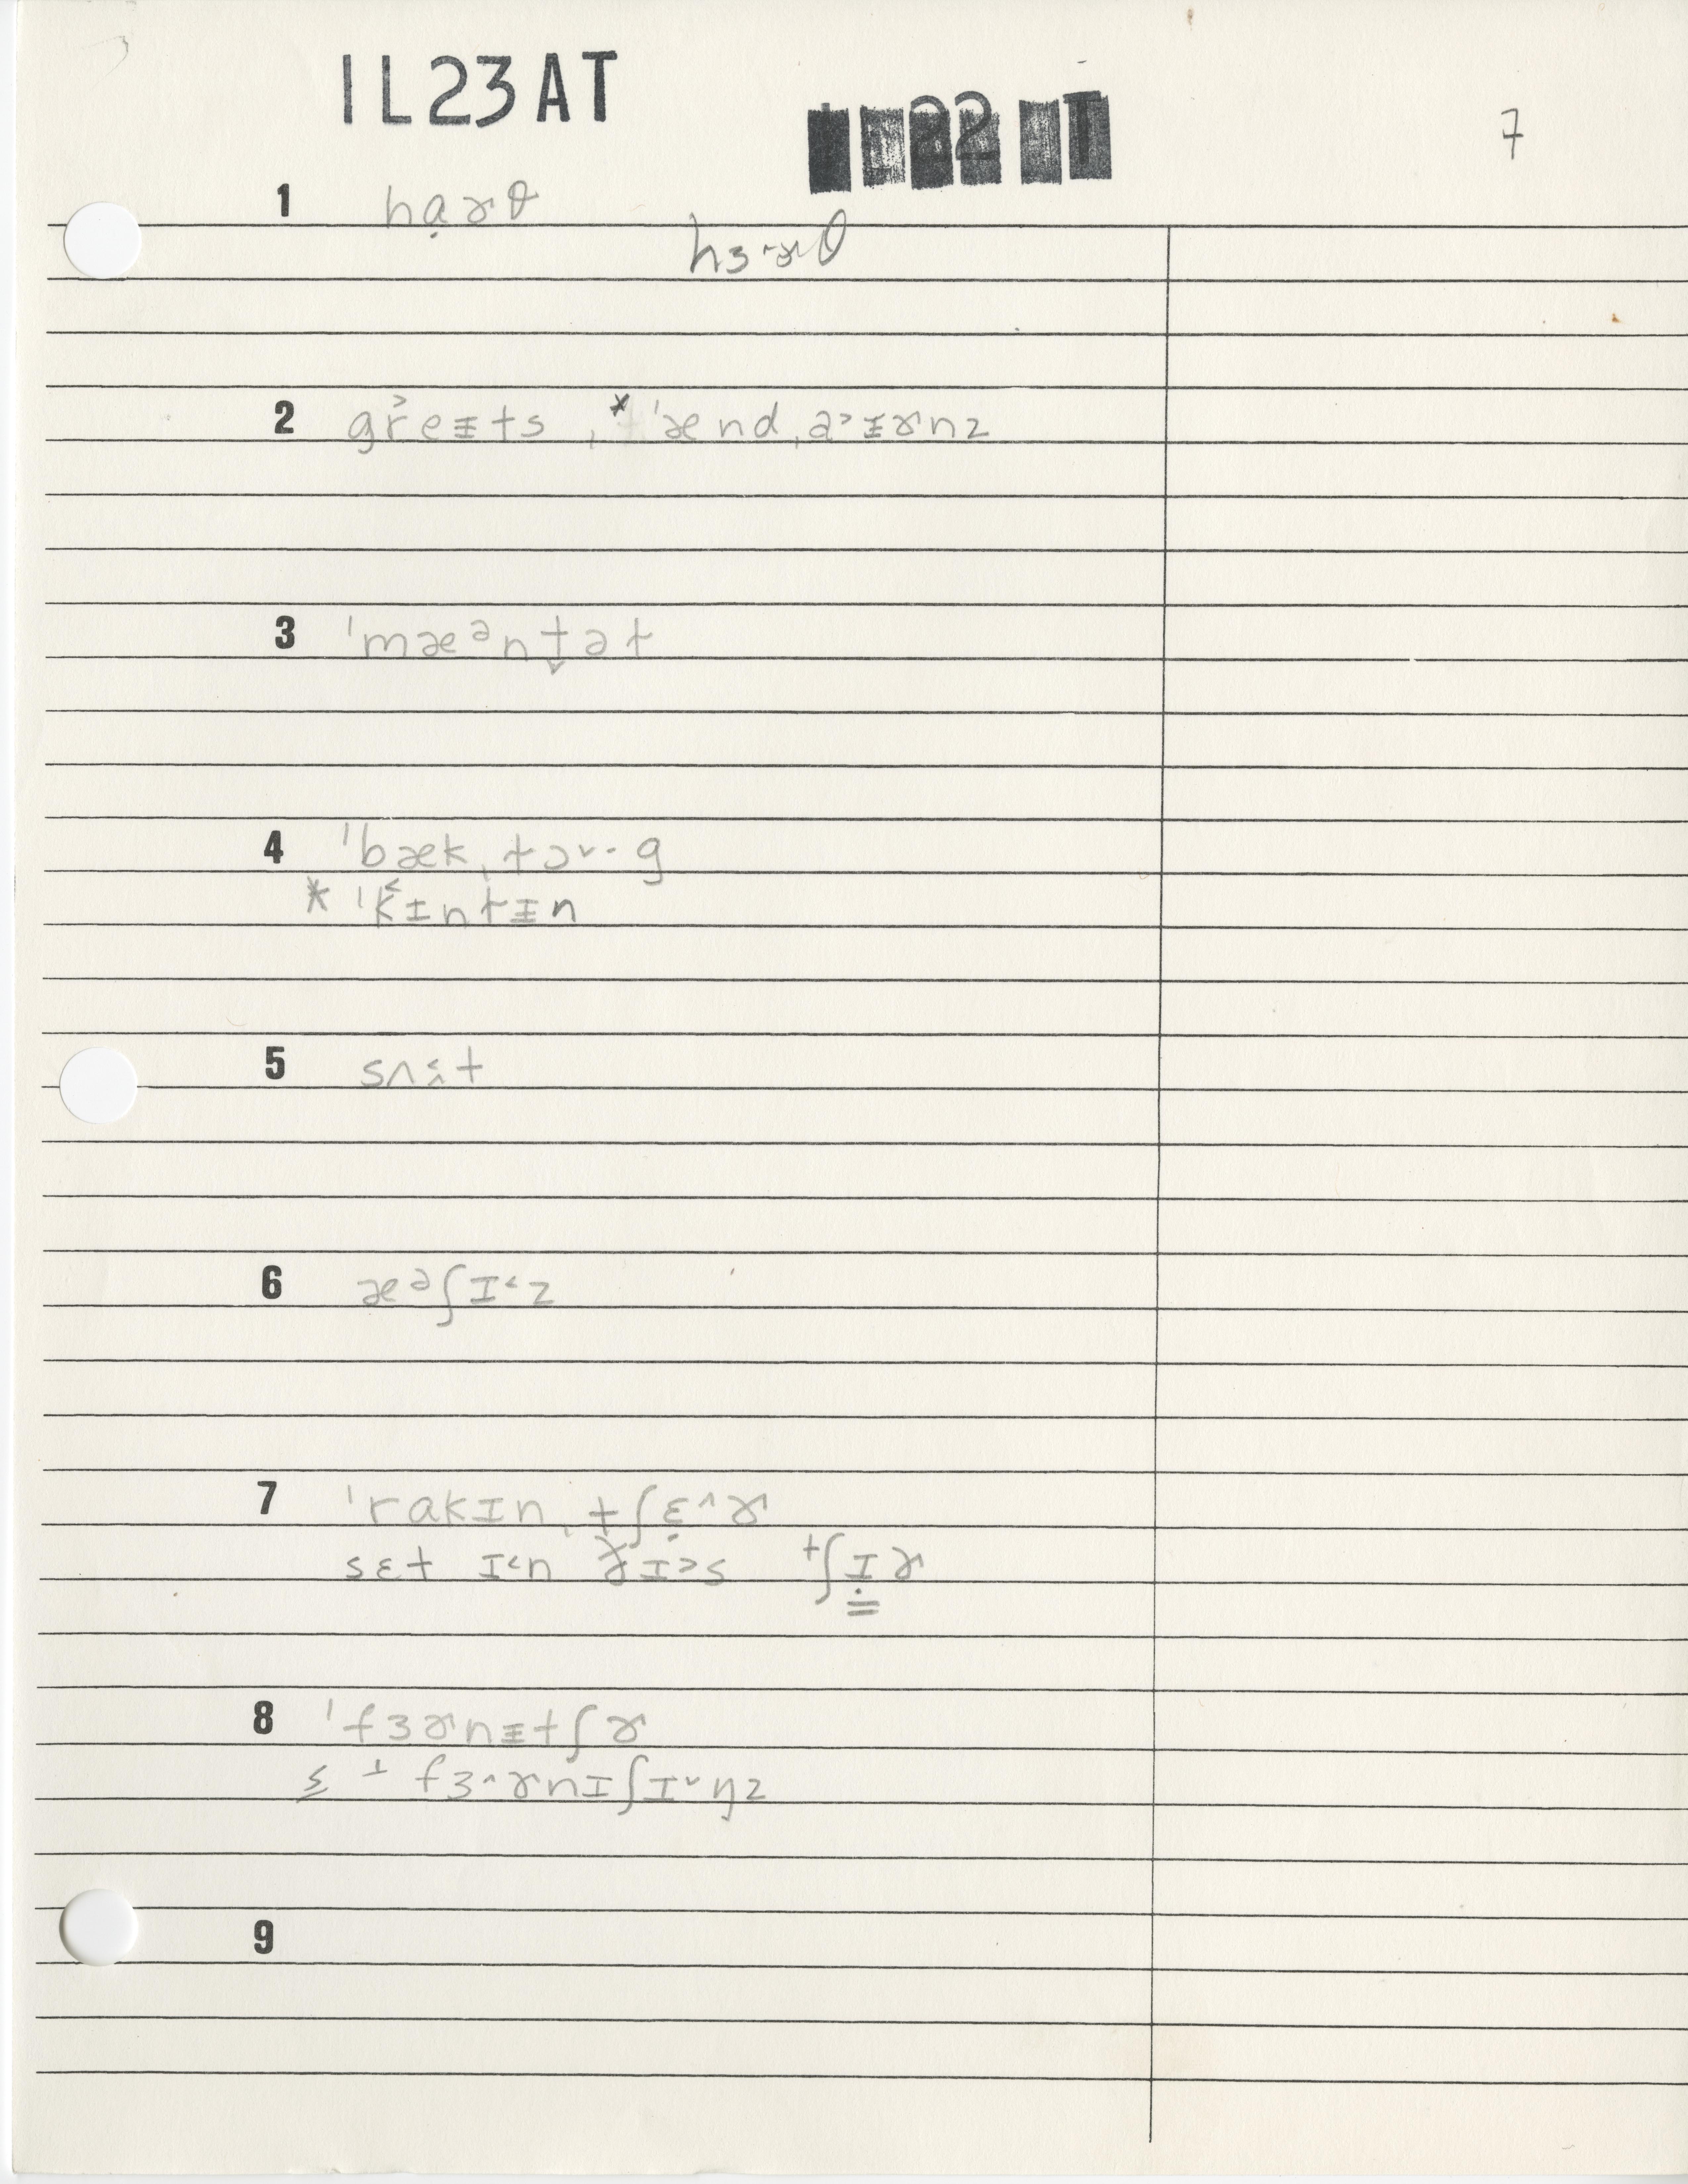 1L23AT
7
1 hạɚθ
hɜ˞ɚθ
2 gr˃eɪ̵ts , * ˈænd,a˃ɪ̵ɚnz
3 ˈmæᵊntət
4 ˈbæk,tɔ˅·g
* ˈk˂ɪntɪ̵n
5 sʌs̬t
6 æᵊʃɪ˂z
7 ˈrakɪn,tʃɛ̣˄ɚ
sɛt ɪ˂n ðɪ˃s tʃɪ̣ɚ
8 ˈfɜɚnɪ̵tʃɚ
fɜ˄ɚnɪʃɪ˅ŋz
9